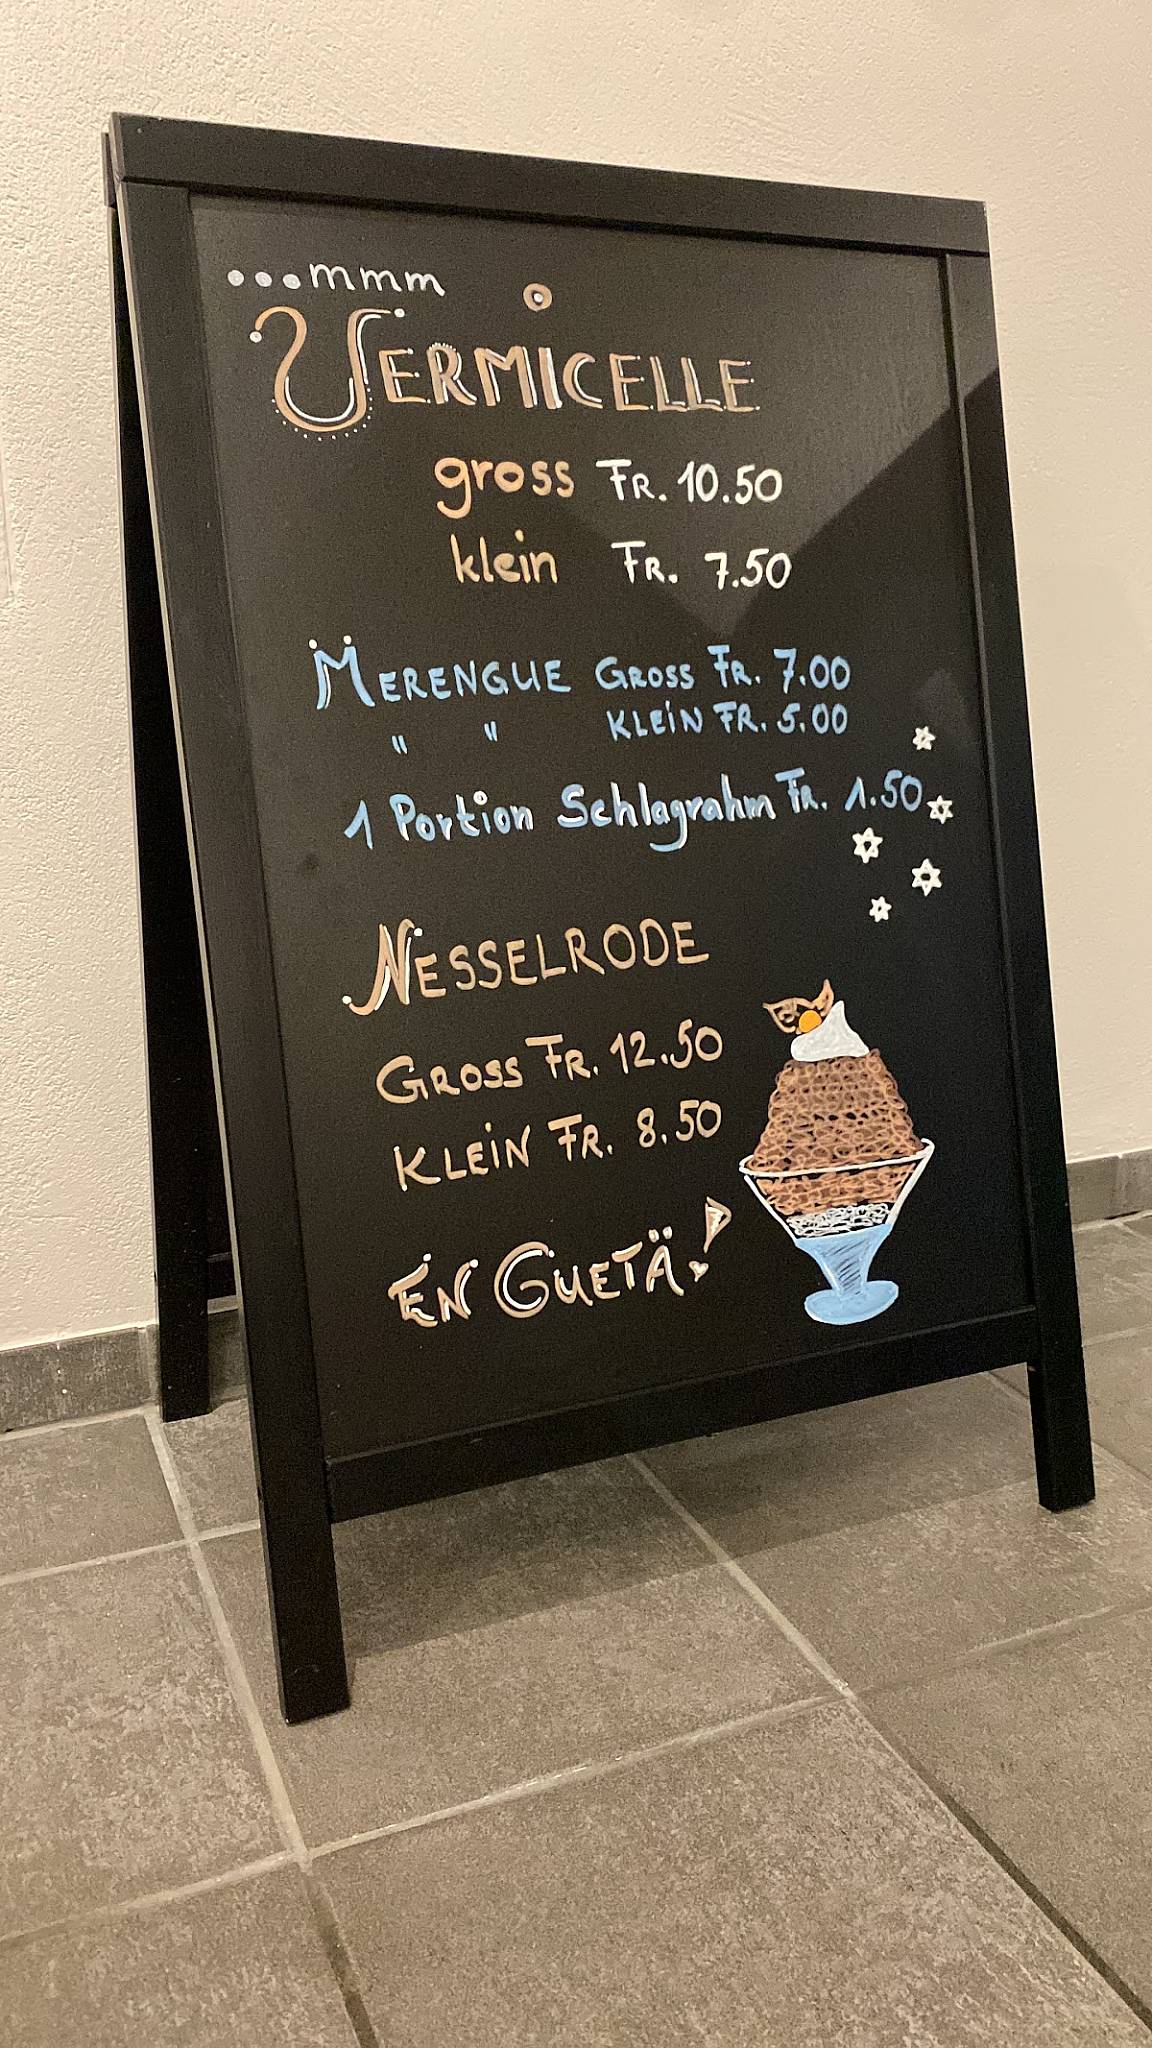 ...mmm
VERMICELLE
gross FR. 10.50
klein FR. 7.50
MERENGUE GROSS FR. 7.00
" " KLEIN FR. 5.00
1 Portion Schlagrahm FR. 1.50
NESSELRODE
GROSS FR. 12.50
KLEIN FR. 8.50
EN GUETÄ!